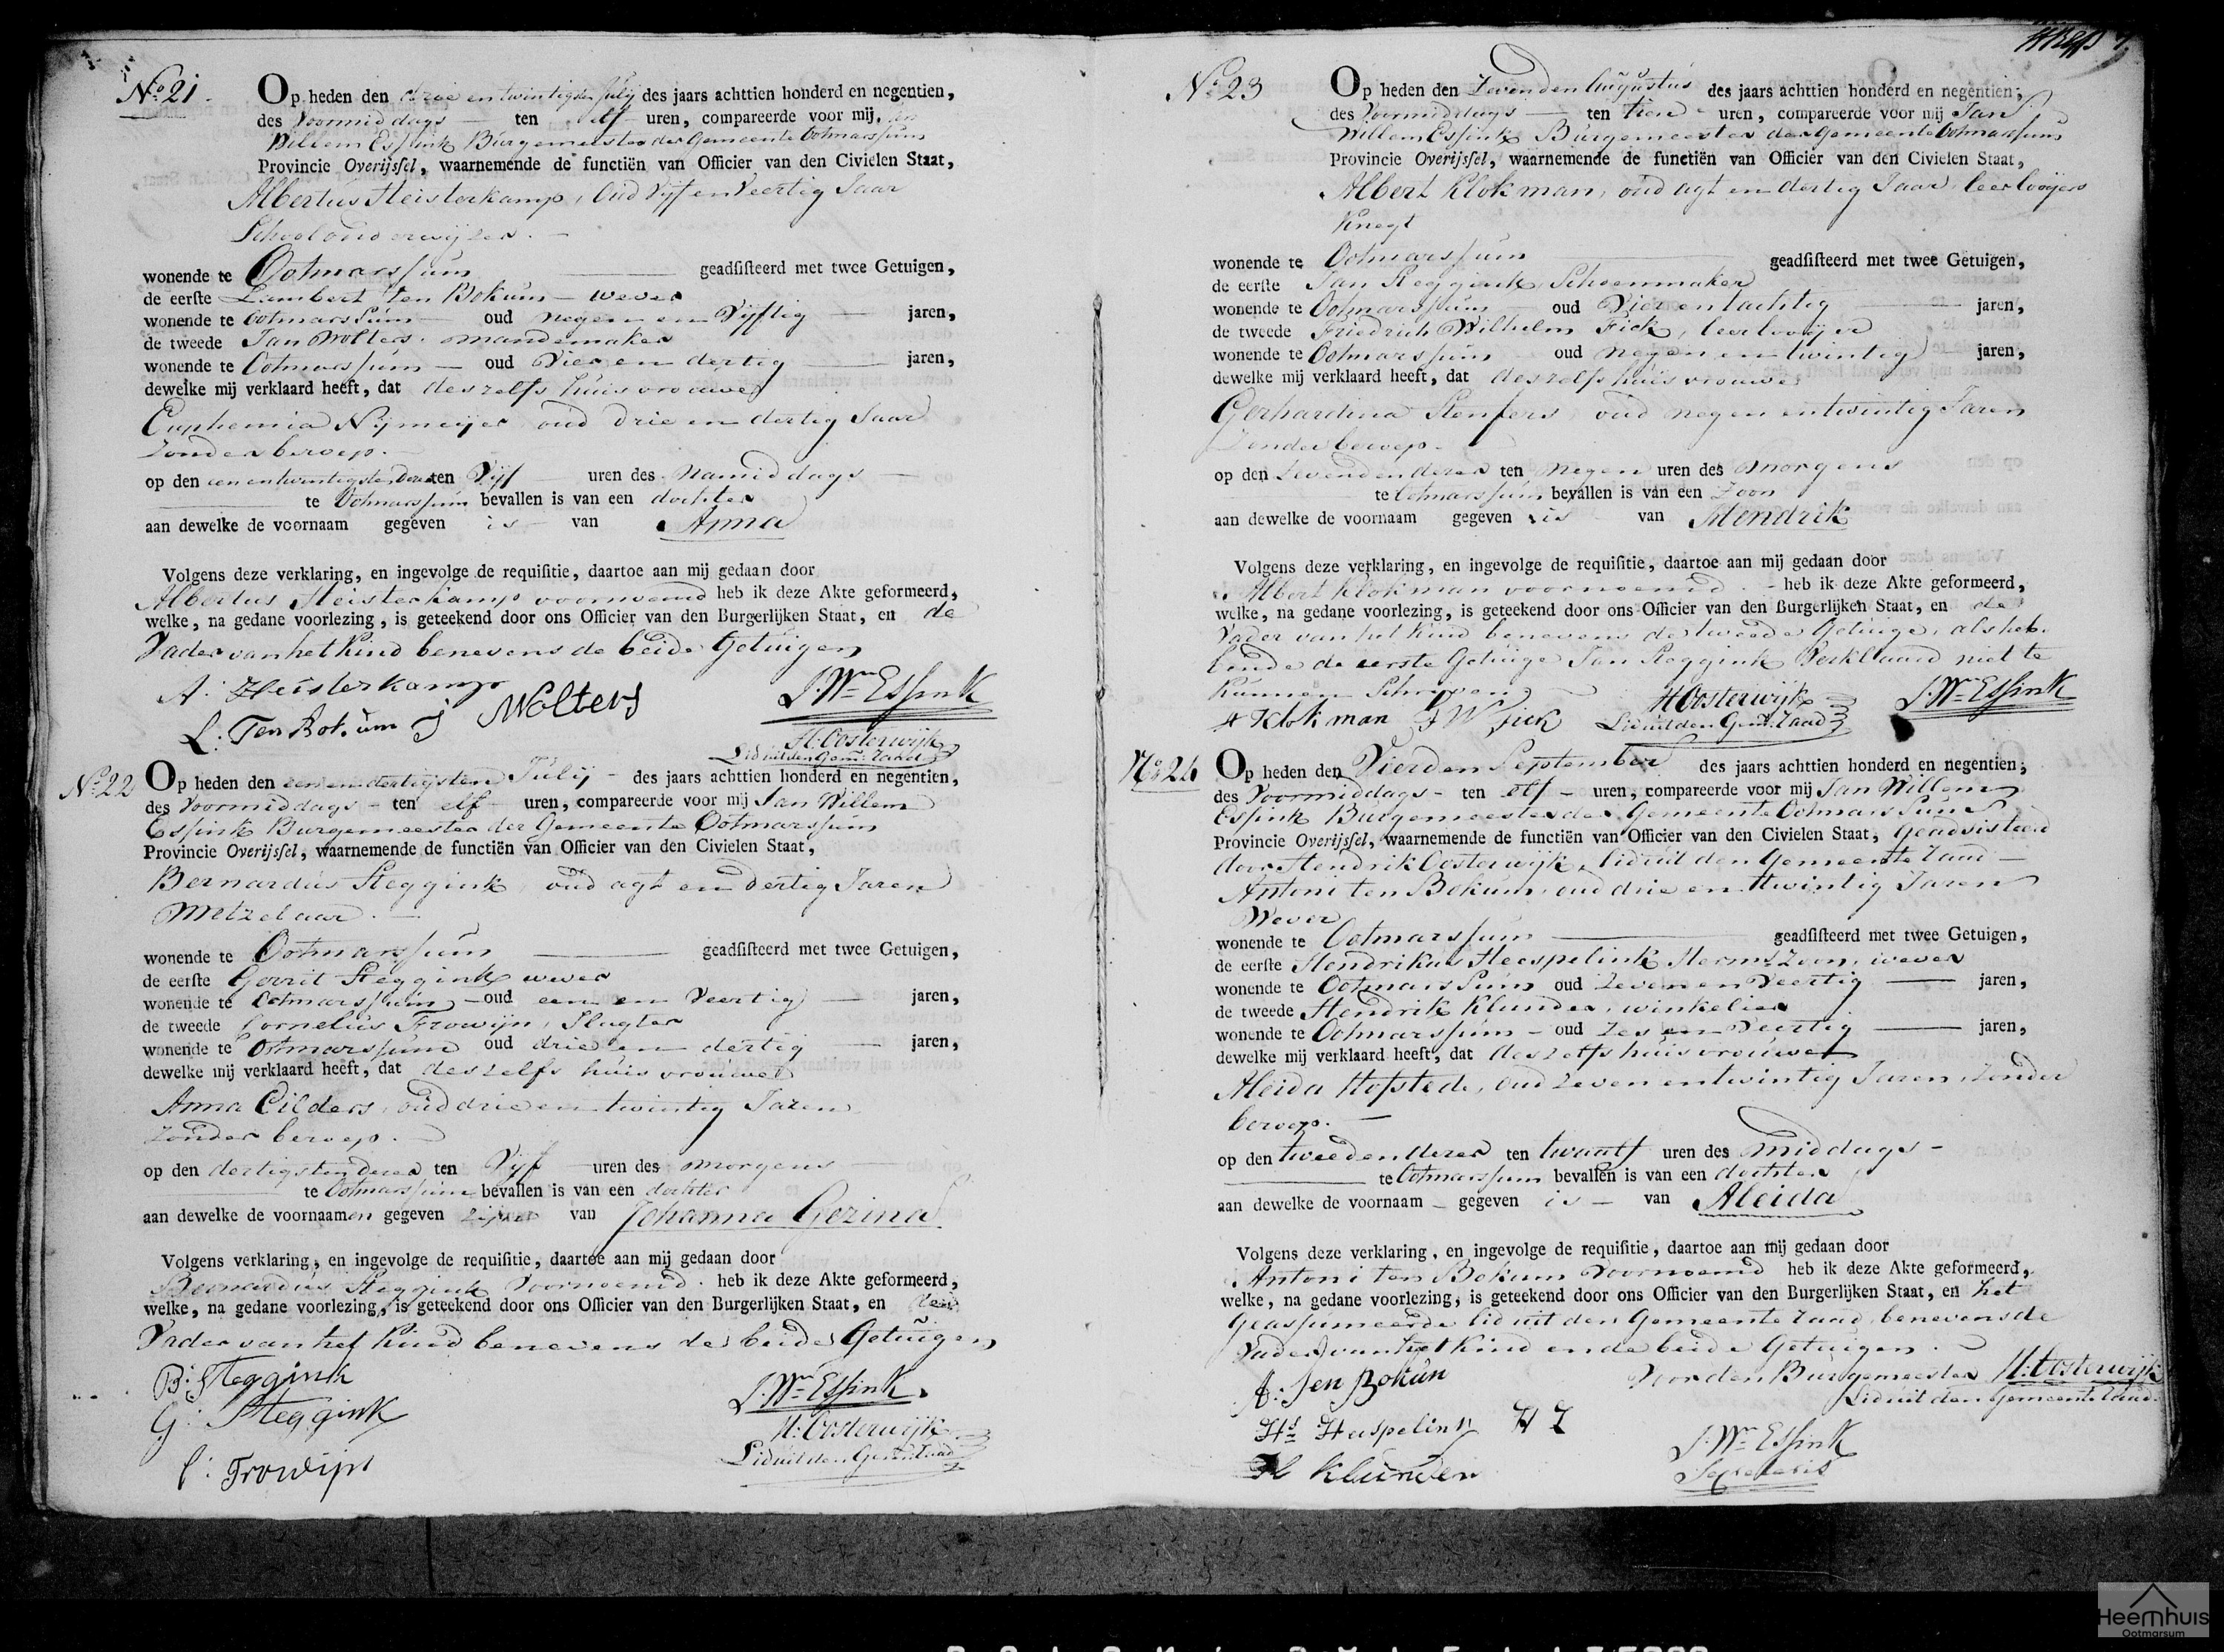 No. 21.
Op heden den drie en twintigsten Julij des jaars achttien honderd en negentien,
des Voormiddags ten elf uren, compareerde voor mij, Jan
Willem Essink Burgemeester der Gemeente Ootmarssum
Provincie Overijssel, waarnemende de functiën van Officier van den Civielen Staat,
Albertus Heisterkamp, Oud Vijf en Veertig Jaar
Schoolonderwijzer.
wonende te Ootmarssum geadsisteerd met twee Getuigen,
de eerste Lambert ten Bokum - wever
wonende te Ootmarssum oud negen en Vijftig jaren,
de tweede Jan Wolters. mandemaker
wonende te Ootmarssum oud Vier en dertig jaren,
dewelke mij verklaard heeft, dat deszelfs huisvrouwe
Euphemia Nijmeijer oud drie en dertig Jaar
Zonder beroep.
op den een en twintigsten dezer ten Vijf uren des Namiddags
te Ootmarssum bevallen is van een dochter
aan dewelke de voornaam gegeven is van Anna
Volgens deze verklaring, en ingevolge de requisitie, daartoe aan mij gedaan door
Albertus Heisterkamp voornoemd heb ik deze Akte geformeerd,
welke, na gedane voorlezing, is geteekend door ons Officier van den Burgerlijken Staat, en de
Vader van het Kind benevens de beide Getuigen
A: Heisterkamp
L: Ten Bokum J Wolters J. Wm Essink
H: Oosterwijk
Lid uit den Gem: Raad
No. 22
Op heden den een en dertigsten Julij des jaars achttien honderd en negentien,
des Voormiddags ten elf uren, compareerde voor mij Jan Willem
Essink Burgemeester der Gemeente Ootmarssum
Provincie Overijssel, waarnemende de functiën van Officier van den Civielen Staat,
Bernardus Steggink, oud agt en dertig Jaren
Metzelaar.
wonende te Ootmarssum geadsisteerd met twee Getuigen,
de eerste Gerrit Steggink wever
wonende te Ootmarssum oud een en Veertig jaren,
de tweede Cornelius Frowijn, Slagter
wonende te Ootmarssum oud drie en dertig jaren,
dewelke mij verklaard heeft, dat deszelfs huisvrouwe
Anna Eilders, oud drie en twintig Jaren
Zonder beroep.
op den dertigsten dezer ten Vijf uren des morgens
te Ootmarssum bevallen is van een dochter
aan dewelke de voornaamen gegeven zijn van Johanna Gezina
Volgens verklaring, en ingevolge de requisitie, daartoe aan mij gedaan door
Bernardus Steggink Voornoemd. heb ik deze Akte geformeerd,
welke, na gedane voorlezing, is geteekend door ons Officier van den Burgerlijken Staat, en den
Vader van het Kind benevens de beide Getuigen
B: Steggink
G: Steggink J. Wm Essink
C: Frowijn H: Oosterwijk
Lid uit den Gem: Raad
No. 23
Op heden den Zevenden Augustus des jaars achttien honderd en negentien;
des Voormiddags ten tien uren, compareerde voor mij Jan
Willem Essink Burgemeester der Gemeente Ootmarssum
Provincie Overijssel, waarnemende de functiën van Officier van den Civielen Staat,
Albert Klokman, oud agt en dertig Jaar, leerlooijers
Knegt
wonende te Ootmarssum geadsisteerd met twee Getuigen,
de eerste Jan Steggink, Schoenmaker
wonende te Ootmarssum oud Vier en tachtig jaren,
de tweede Friedrich Wilhelm Fick, leerlooijer
wonende te Ootmarssum oud negen en twintig jaren,
dewelke mij verklaard heeft, dat deszelfs huisvrouwe
Gerhardina Stenfers oud negen en twintig Jaren
Zonder beroep.
op den Zevenden dezer ten negen uren des morgens
te Ootmarssum bevallen is van een Zoon
aan dewelke de voornaam gegeven is van Hendrik
Volgens deze verklaring, en ingevolge de requisitie, daartoe aan mij gedaan door
Albert Klokman voornoemd. heb ik deze Akte geformeerd,
welke, na gedane voorlezing, is geteekend door ons Officier van den Burgerlijken Staat, en de
Vader van het Kind benevens de tweede Getuige, als heb-
bende de eerste Getuige Jan Steggink Verklaard niet te
Kunnen Schrijven
A Klokman F W Fick H Oosterwijk J. Wm Essink
Lid uit den Gem. Raad
No. 24
Op heden den Vierden September des jaars achttien honderd en negentien;
des Voormiddags ten elf uren, compareerde voor mij Jan Willem
Essink Burgemeester der Gemeente Ootmarssum
Provincie Overijssel, waarnemende de functiën van Officier van den Civielen Staat, geadsisteerd
door Hendrik Oosterwijk, lid uit den Gemeente Raad
Antoni ten Bokum, oud drie en twintig Jaren
Wever
wonende te Ootmarssum geadsisteerd met twee Getuigen,
de eerste Hendrikus Heespelink Hermszoon, wever
wonende te Ootmarssum oud Zeven en Veertig jaren,
de tweede Hendrik Klunder, winkelier
wonende te Ootmarssum oud Zes en Veertig jaren,
dewelke mij verklaard heeft, dat deszelfs huisvrouwe
Aleida Hofstede, oud Zeven en twintig Jaren, Zonder
beroep.
op den tweeden dezer ten twaalf uren des middags
te Ootmarssum bevallen is van een dochter
aan dewelke de voornaam gegeven is van Aleida
Volgens deze verklaring, en ingevolge de requisitie, daartoe aan mij gedaan door
Antoni ten Bokum Voornoemd heb ik deze Akte geformeerd,
welke, na gedane voorlezing, is geteekend door ons Officier van den Burgerlijken Staat, en het
Geassumeerde lid uit den Gemeente Raad, benevens de
Vader van het Kind en de beide Getuigen.
A: Ten Bokum Voor den Burgemeester H: Oosterwijk
Lid uit den Gemeente Raad.
Hs Heespelink H Z
H Klunder J. Wm Essink
Secretaris
Heemhuis
Ootmarsum